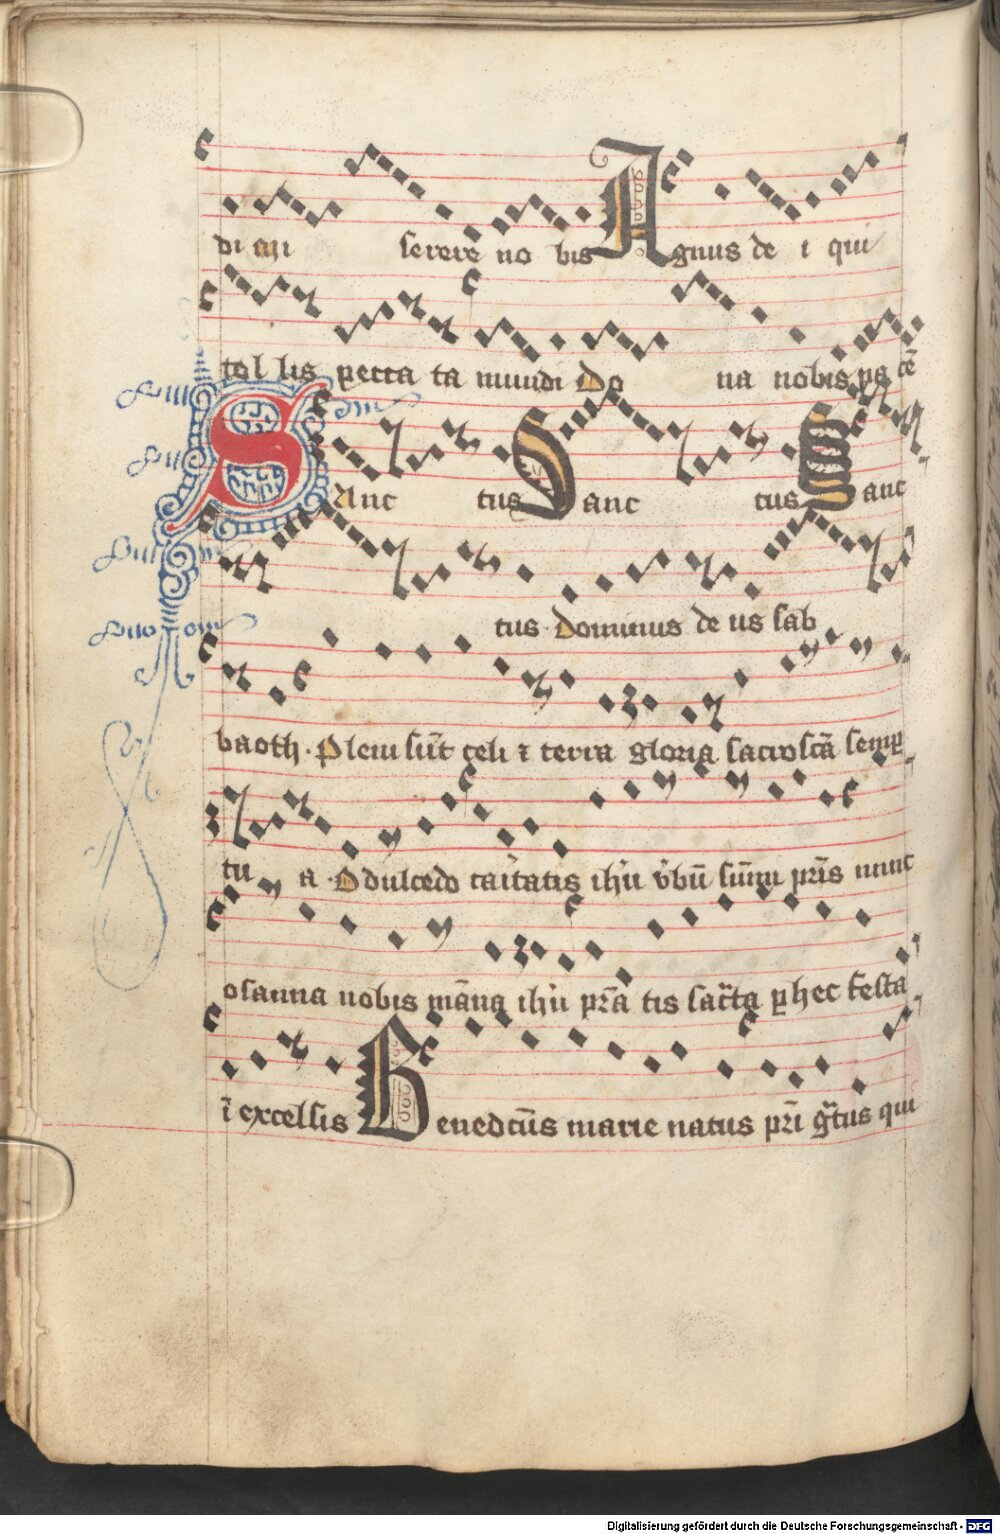 di mi serere no bis Agnus de i qui
tol lis pecca ta mundi Do na nobis pacē
Sanc tus Sanc tus Sanc
tus Dominus de us sab
baoth · Pleni sūt celi ⁊ terra gloria sacrosctā semꝑ
tu a · O dulcedo ihū vbū sūmi pris nunc
osanna nobis māna ihū prā tis sacta ꝑ hec festa
ī excelsis Benedctūs marie natus pri gtus qui
Digitalisierung gefördert durch die Deutsche Forschungsgemeinschaft - DFG